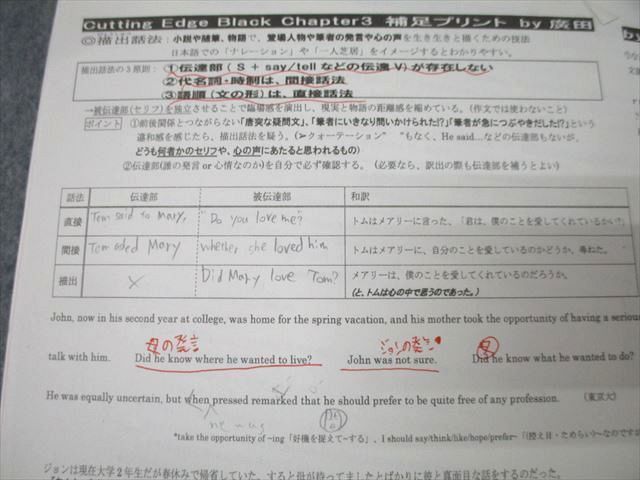 Cutting Edge Black Chapter3 補足プリント by 廣田
◎描出話法:小説や随筆、物語で、登場人物や筆者の発言や心の声を生き生きと描くための技法
日本語での「ナレーション」や「一人芝居」をイメージするとわかりやすい。
描出話法の3原則: ①伝達部( S + say/tell などの伝達 V)が存在しない
②代名詞・時制は、間接話法
③語順(文の形)は、直接話法
→被伝達部(セリフ)を独立させることで臨場感を演出し、現実と物語の距離感を縮めている。(作文では使わないこと)
ポイント ①前後関係とつながらない「唐突な疑問文」、「筆者にいきなり問いかけられた!?」「筆者が急につぶやきだした!?」という
違和感を感じたら、描出話法を疑う。(>クォーテーション" "もなく、He said…などの伝達部もないが、
どうも何者かのセリフや、心の声にあたると思われるもの)
②伝達部(誰の発言 or 心情なのか)を自分で必ず確認する。(必要なら、訳出の際も伝達部を補うとよい)
話法 伝達部 被伝達部 和訳
直接 Tom said to Mary, "Do you love me?" トムはメアリーに言った、「君は、僕のことを愛してくれているかい?」
間接 Tom asked Mary whether she loved him トムはメアリーに、自分のことを愛しているのかどうか、尋ねた。
描出 × Did Mary love Tom? メアリーは、僕のことを愛してくれているのだろうか。
(と、トムは心の中で思うのであった。)
John, now in his second year at college, was home for the spring vacation, and his mother took the opportunity of having a serious
母の発言 ジョンの発言 母
talk with him. Did he know where he wanted to live? John was not sure. Did he know what he wanted to do?
He was equally uncertain, but when pressed remarked that he should prefer to be quite free of any profession. (東京大)
he was
*take the opportunity of ~ing「好機を捉えて~する」、I should say/think/like/hope/prefer~「(控え目・ためらい)~なのですが
ジョンは現在大学2年生だが春休みで帰省していた。すると母が待ってましたとばかりに彼と真面目な話をするのだった。